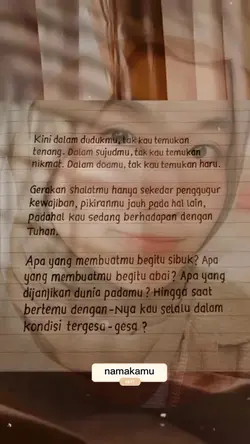 Kini dalam dudukmu, tak kau temukan
tenang. Dalam sujudmu, tak kau temukan
nikmat. Dalam doamu, tak kau temukan haru.
Gerakan shalatmu hanya sekedar penggugur
kewajiban, pikiranmu jauh pada hal lain,
padahal kau sedang berhadapan dengan
Tuhan.
Apa yang membuatmu begitu sibuk? Apa
yang membuatmu begitu abai? Apa yang
dijanjikan dunia padamu? Hingga saat
bertemu dengan-Nya kau selalu dalam
kondisi tergesa-gesa?
namakamu